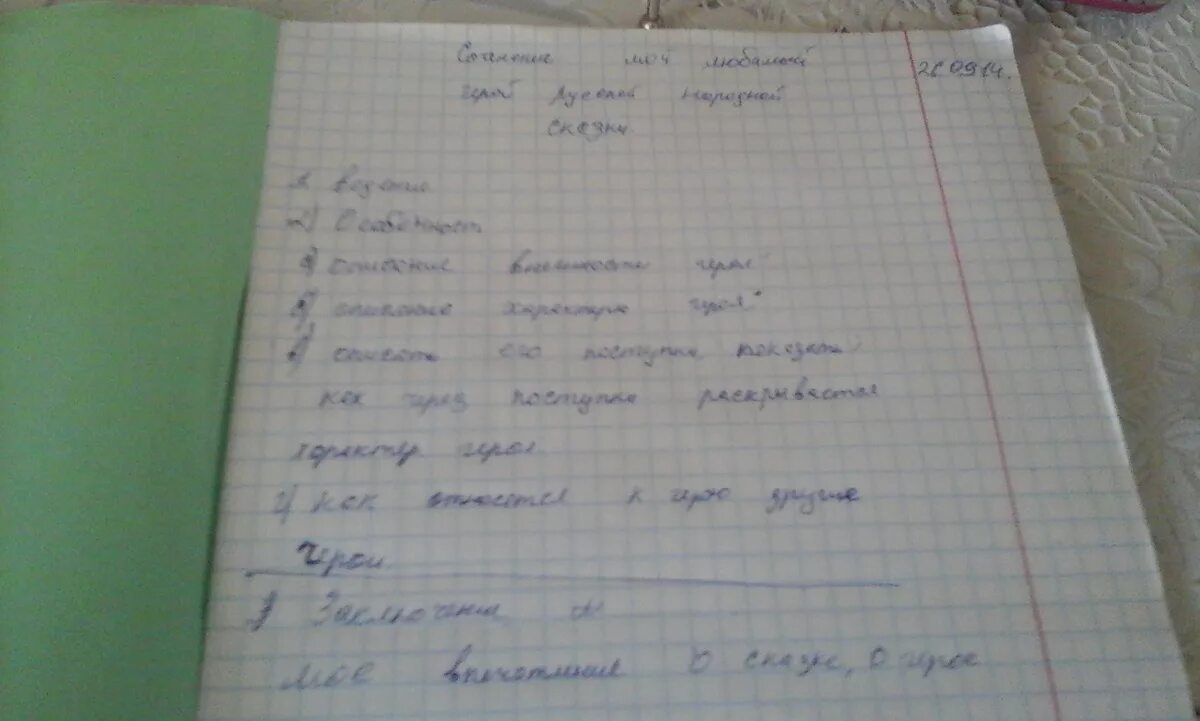 мой любимый
26 09 14.
герой Русской народной
сказки
2) Особенност
описание внешности героя
описание характера героя
описать его поступки показать
как через поступки раскрывается
характер героя
как относятся к герою другие
герои
Заключение
мое впечатление о сказке, о герое